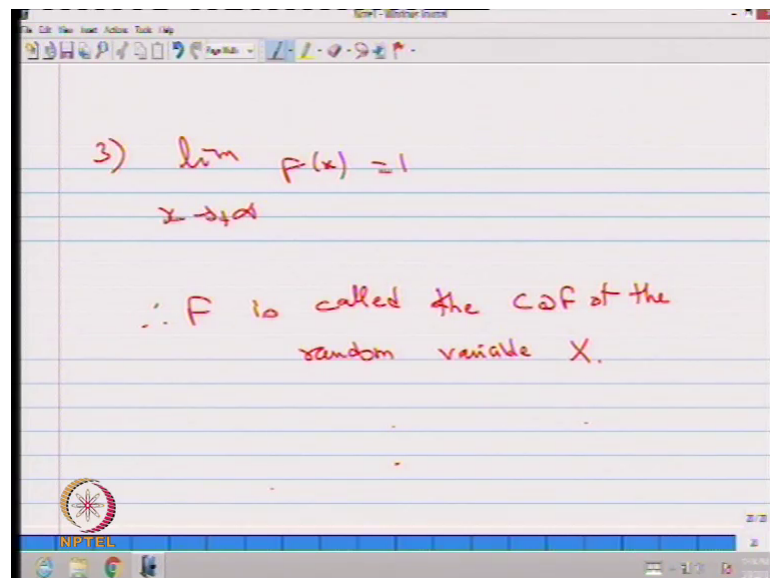 Note1 - Windows Journal
File Edit View Insert Actions Tools Help
Page Width
3) lim F(x) = 1
x → +∞
∴ F is called the CDF of the
random variable X.
NPTEL
20/20
20